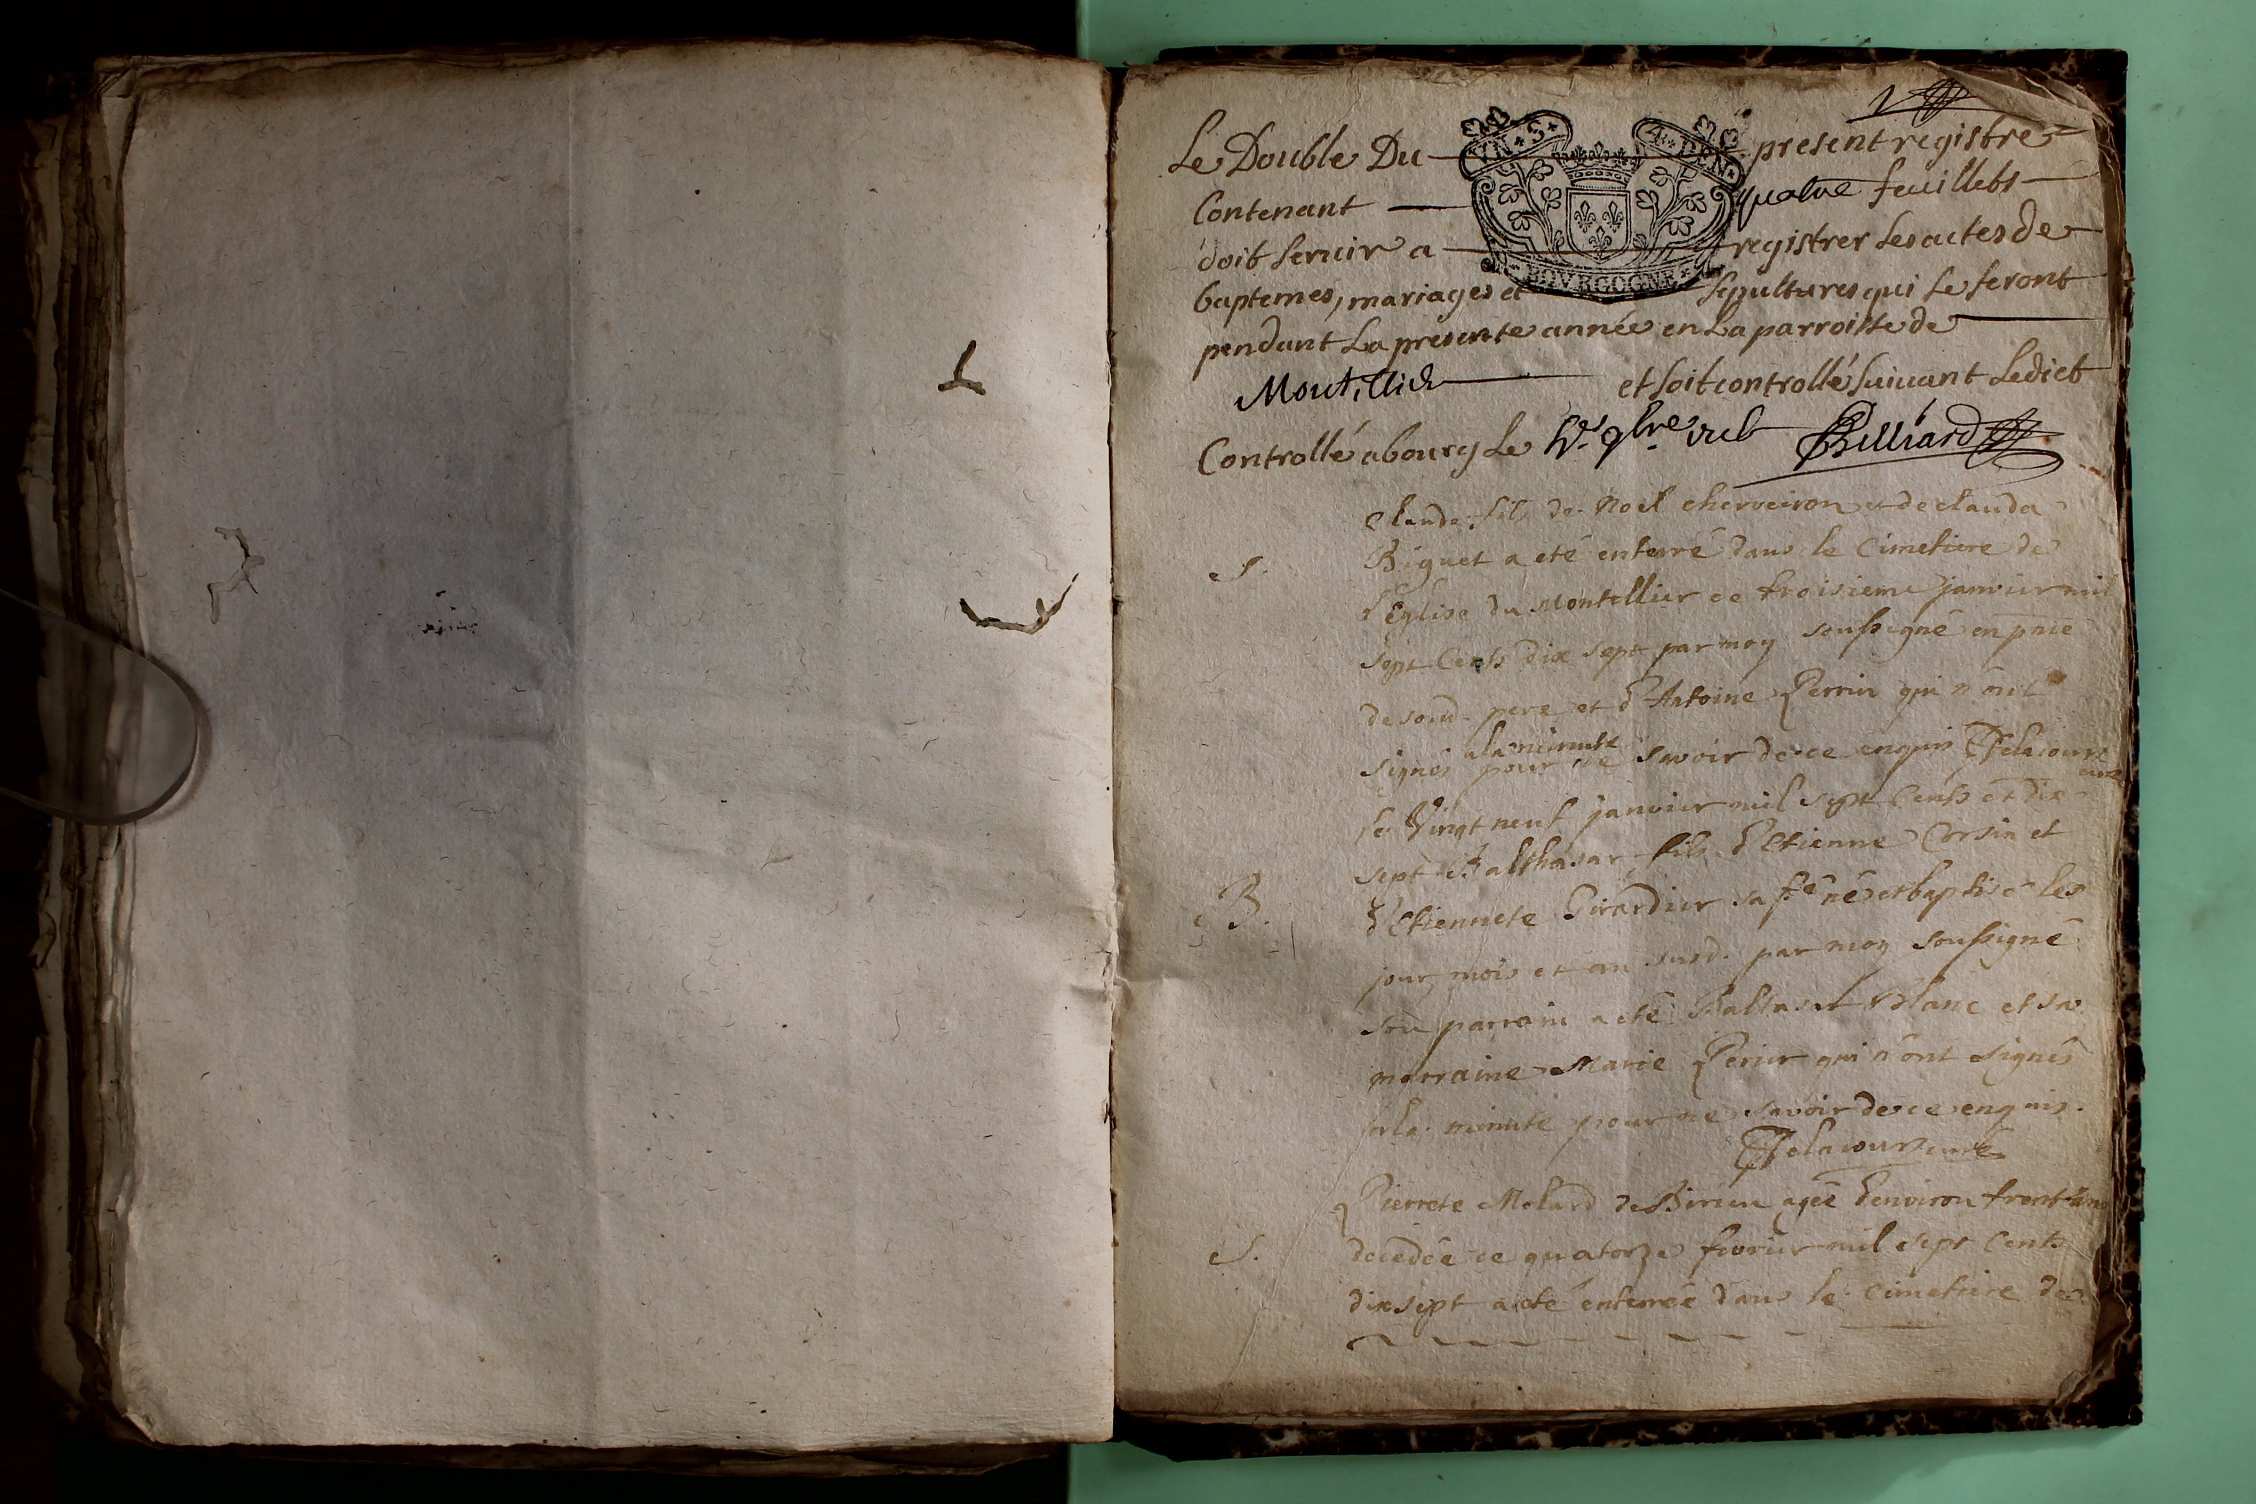 1
Le Double Du present registre
VN • S • 4 • DEN •
Contenant quatre feuillets
doit servir a registrer les actes de
BOVRGOGNE
baptemes, mariages et sepultures qui se feront
pendant La presente année en La parroisse de
Et soit controllé suivant Ledict
Controllé a bourg Le 9bre Billiard
Claude fils de Noel cherveiron et de clauda
S. Biguet a eté enterré dans le Cimetiere de
l'Eglise du Montellier ce troisieme janvier mil
sept Cents dix sept par moy soussigné en pnce
de sond. pere et d'Antoine Perrin qui n'ont
a la minute
signés pour ne savoir de ce enquis Delacour
curé
le Vingt neuf janvier mil sept Cents et dix
sept Balthasar fils d'Etienne Corsin et
B. d'Etiennete Girardier sa fe né et baptisé les
jour, mois et an susd. par moy soussigné
son parrain a eté Baltasar Blanc et sa
marraine Marie Perier qui n'ont signés
sur la minute pour ne savoir de ce enquis.
Delacour curé
Pierrete Molard de Birieu agée d'environ trent ans
S. decedée ce quatorze fevrier mil sept Cents
dix sept a eté enterrée dans le Cimetiere de